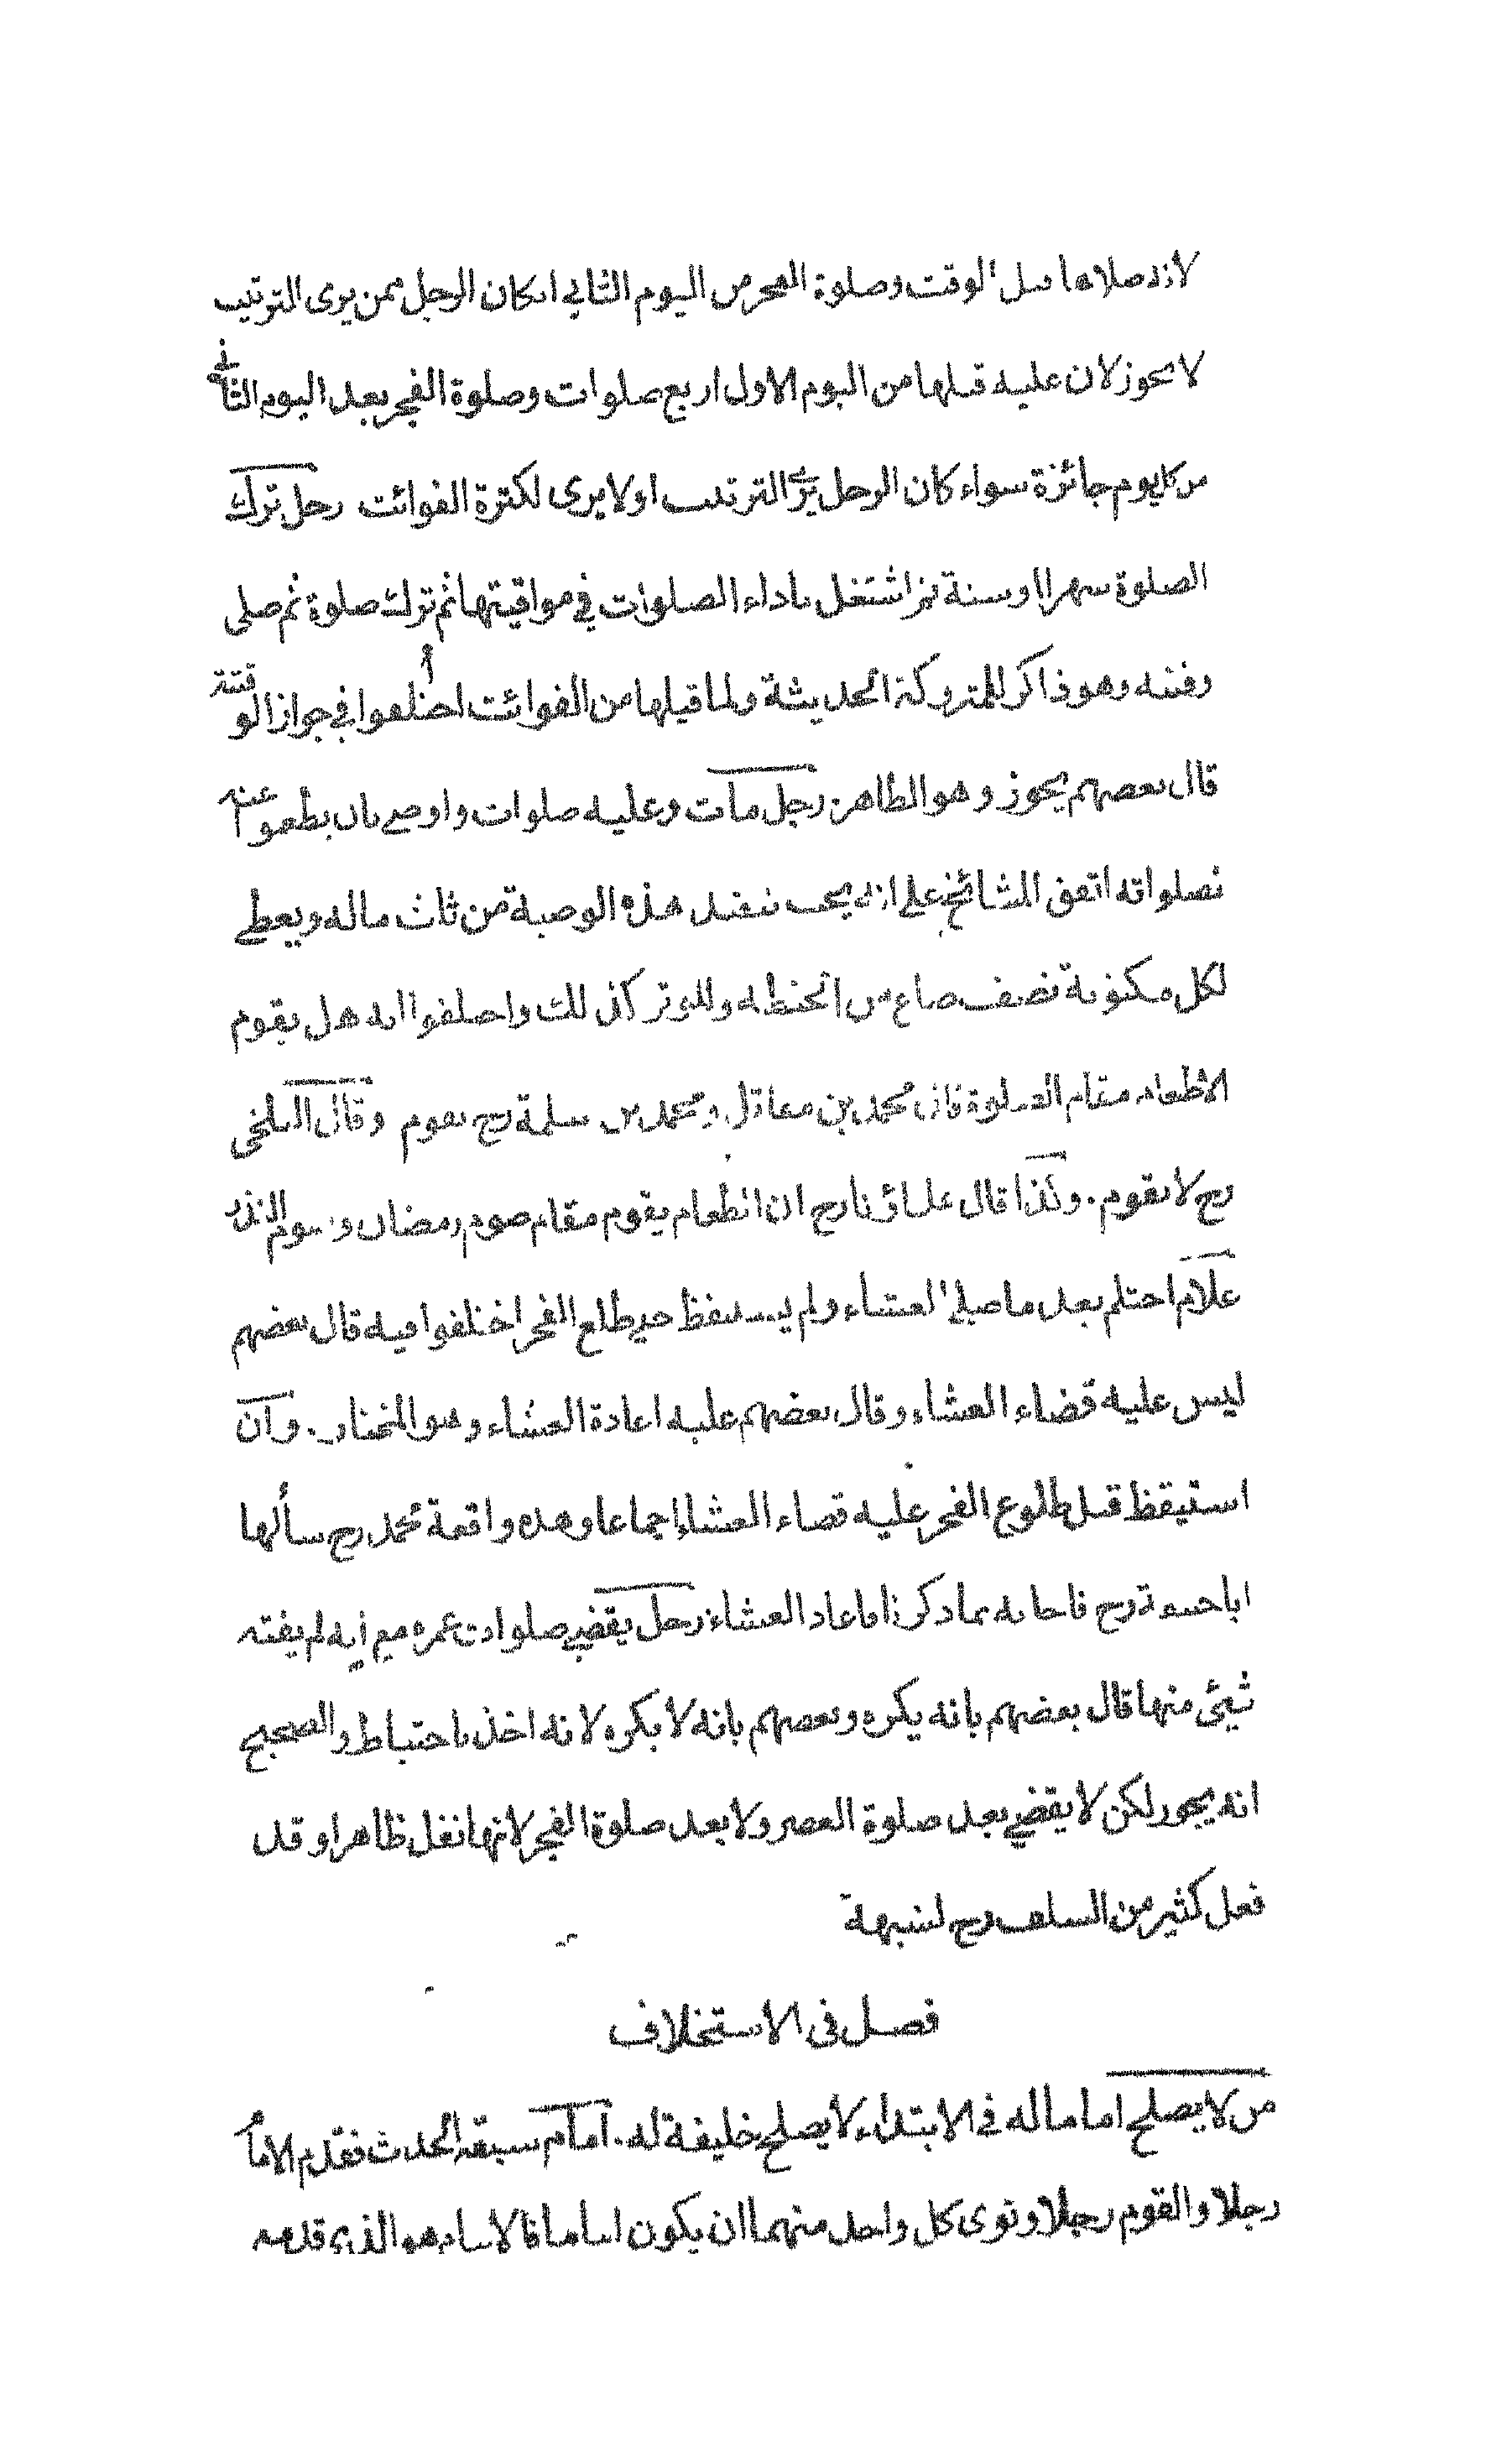 لانه صلاها قبل الوقت وصلوة الفجر من اليوم الثاني ان كان الرجل ممن يرى الترتيب
لا يجوز لان عليه قبلها من اليوم الاول اربع صلوات وصلوة الفجر بعد اليوم الثاني
من كل يوم جائزة سواء كان الرجل يرى الترتيب او لا يرى لكثرة الفوائت رجل ترك
الصلوة شهرا او سنة ثم اشتغل باداء الصلوات في مواقيتها ثم ترك صلوة ثم صلى
وقتية وهو ذاكر للمتروكة الحديثة ولما قبلها من الفوائت اختلفوا في جواز الوقتية
قال بعضهم يجوز وهو الظاهر رجل مات وعليه صلوات واوصى بان يطعموا عنه
بصلواته اتفق المشائخ على انه يجب تنفيذ هذه الوصية من ثلث ماله ويعطى
لكل مكتوبة نصف صاع من الحنطة وللوتر كذلك واختلفوا انه هل يقوم
الاطعام مقام الصلوة قال محمد بن مقاتل ومحمد بن سلمة رح يقوم وقال البلخى
رح لا يقوم. ولذا قال علمائنا رح ان الطعام يقوم مقام صوم رمضان وصوم النذر
غلام احتلم بعد ما صلى العشاء ولم يستيقظ حتى طلع الفجر اختلفوا فيه قال بعضهم
ليس عليه قضاء العشاء وقال بعضهم عليه اعادة العشاء وهو المختار. وان
استيقظ قبل طلوع الفجر عليه قضاء العشاء إجماعا وهذه واقعة محمد رح سألها
ابا حنيفة رح فاجابه بما ذكرنا فاعاد العشاء رجل يقضى صلوات عمره مع أنه لم يفته
شيئ منها قال بعضهم بانه يكره وبعضهم بانه لا يكره لانه اخذ باحتياط والصحيح
انه يجوز لكن لا يقضى بعد صلوة العصر ولا بعد صلوة الفجر لانها نفل ظاهرا وقد
فعل كثير من السلف رح لشبهة
فصل فى الاستخلاف
من لا يصلح اماما له فى الابتداء لا يصلح خليفة له. امام سبقه الحدث فقدم الامام
رجلا والقوم رجلا ونوى كل واحد منهما ان يكون اماما فالامام هو الذى قدمه